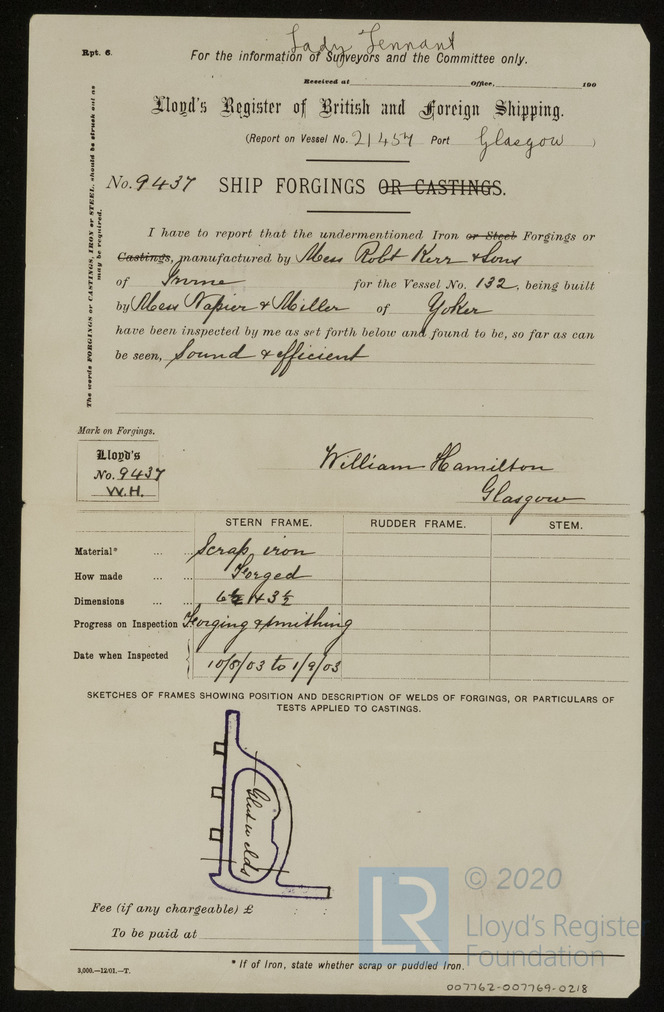 Lady Tennant
Rpt. 6.
For the information of Surveyors and the Committee only.
Received at Office, 190
Lloyd's Register of British and Foreign Shipping.
(Report on Vessel No. 21457 Port Glasgow )
The words FORGINGS or CASTINGS, IRON or STEEL, should be struck out as
may be required.
No. 9437 SHIP FORGINGS OR CASTINGS.
I have to report that the undermentioned Iron or Steel Forgings or
Castings, manufactured by Mess Robt Kerr & Sons
of Irvine for the Vessel No. 132, being built
by Mess Napier & Miller of Yoker
have been inspected by me as set forth below and found to be, so far as can
be seen, Sound & efficient
Mark on Forgings.
Lloyd's
No. 9437
W.H.
William Hamilton
Glasgow
STERN FRAME. RUDDER FRAME. STEM.
Material* ... ... Scrap iron
How made ... ... Forged
Dimensions ... ... 6½ × 3½
Progress on Inspection Forging & smithing
Date when Inspected 10/8/03 to 1/9/03
SKETCHES OF FRAMES SHOWING POSITION AND DESCRIPTION OF WELDS OF FORGINGS, OR PARTICULARS OF
TESTS APPLIED TO CASTINGS.
Glut welds
Fee (if any chargeable) £ : :
To be paid at
* If of Iron, state whether scrap or puddled Iron.
3,000.—12/01.—T.
LR © 2020
Lloyd's Register
Foundation
007762-007769-0218